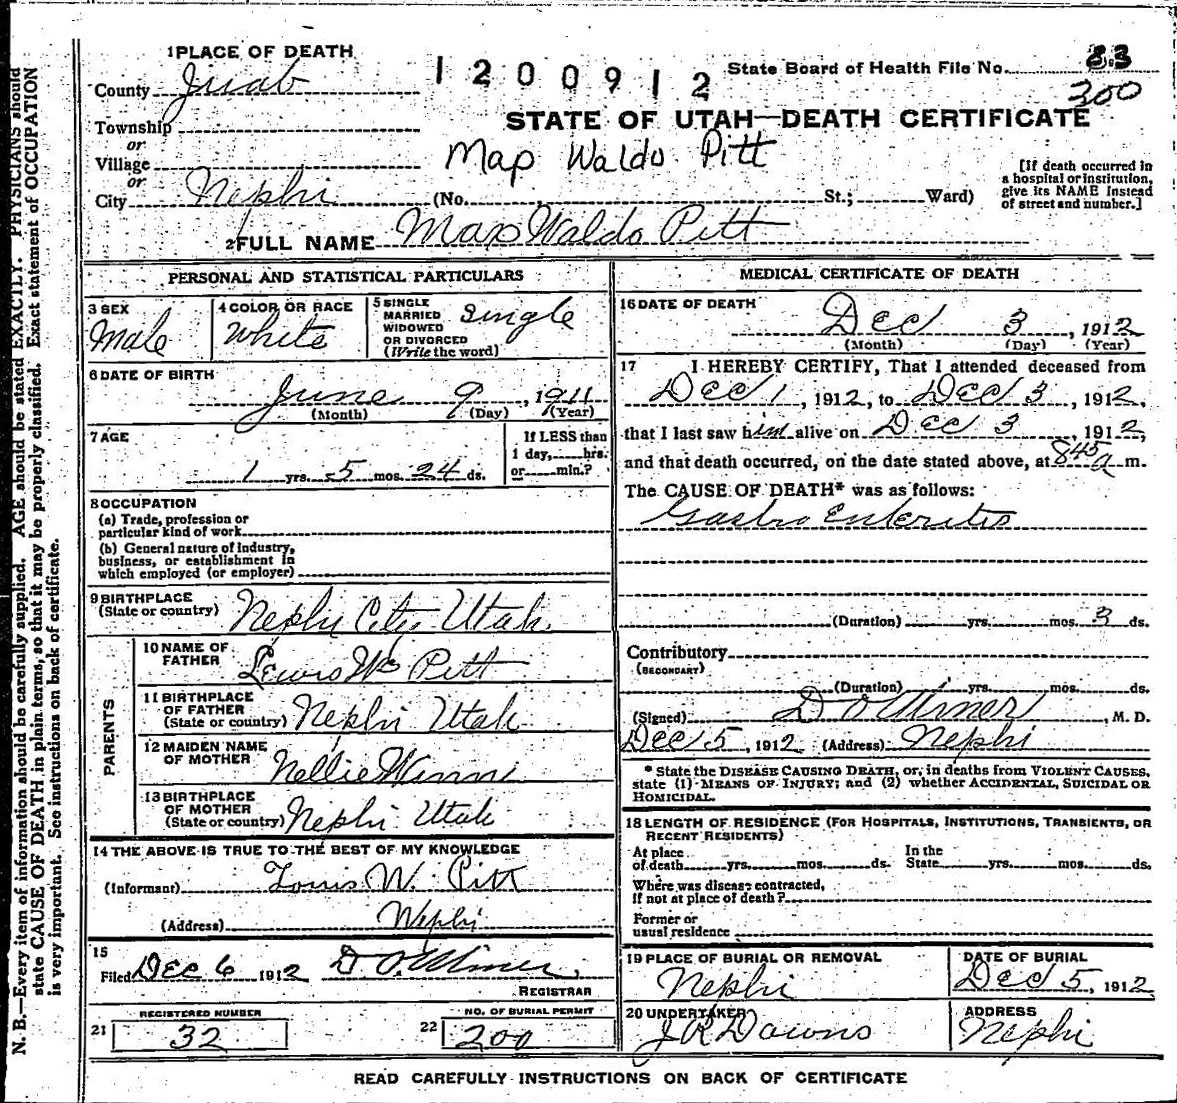 1 PLACE OF DEATH
1200912
State Board of Health File No. 83
300
County Juab
STATE OF UTAH—DEATH CERTIFICATE
Township
or
Village
Max Waldo Pitt
or
City Nephi (No. St.; Ward)
[If death occurred in
a hospital or institution,
give its NAME instead
of street and number.]
2 FULL NAME Max Waldo Pitt
PERSONAL AND STATISTICAL PARTICULARS
3 SEX
Male
4 COLOR OR RACE
White
5 SINGLE
MARRIED
WIDOWED
OR DIVORCED
(Write the word)
Single
6 DATE OF BIRTH
June 9, 1911
(Month) (Day) (Year)
7 AGE
1 yrs. 5 mos. 24 ds.
If LESS than
1 day, hrs.
or min.?
8 OCCUPATION
(a) Trade, profession or
particular kind of work
(b) General nature of industry,
business, or establishment in
which employed (or employer)
9 BIRTHPLACE
(State or country) Nephi City Utah
PARENTS
10 NAME OF
FATHER Lewis W Pitt
11 BIRTHPLACE
OF FATHER
(State or country) Nephi Utah
12 MAIDEN NAME
OF MOTHER Nellie Winn
13 BIRTHPLACE
OF MOTHER
(State or country) Nephi Utah
14 THE ABOVE IS TRUE TO THE BEST OF MY KNOWLEDGE
(Informant) Louis W. Pitt
(Address) Nephi
15
Filed Dec 6 1912 D O Miner
REGISTRAR
REGISTERED NUMBER
21 32
NO. OF BURIAL PERMIT
22 200
MEDICAL CERTIFICATE OF DEATH
16 DATE OF DEATH
Dec 3, 1912
(Month) (Day) (Year)
17 I HEREBY CERTIFY, That I attended deceased from
Dec 1, 1912, to Dec 3, 1912,
that I last saw him alive on Dec 3, 1912,
and that death occurred, on the date stated above, at 845 a m.
The CAUSE OF DEATH* was as follows:
Gastro Enteritis
(Duration) yrs. mos. 3 ds.
Contributory
(SECONDARY)
(Duration) yrs. mos. ds.
(Signed) D O Miner, M. D.
Dec 5, 1912 (Address) Nephi
* State the DISEASE CAUSING DEATH, or, in deaths from VIOLENT CAUSES,
state (1) MEANS OF INJURY; and (2) whether ACCIDENTAL, SUICIDAL OR
HOMICIDAL.
18 LENGTH OF RESIDENCE (FOR HOSPITALS, INSTITUTIONS, TRANSIENTS, OR
RECENT RESIDENTS)
At place
of death yrs. mos. ds.
In the
State yrs. mos. ds.
Where was disease contracted,
if not at place of death?
Former or
usual residence
19 PLACE OF BURIAL OR REMOVAL
Nephi
DATE OF BURIAL
Dec 5, 1912
20 UNDERTAKER
J R Downs
ADDRESS
Nephi
READ CAREFULLY INSTRUCTIONS ON BACK OF CERTIFICATE
N. B.—Every item of information should be carefully supplied. AGE should be stated EXACTLY. PHYSICIANS should
state CAUSE OF DEATH in plain terms, so that it may be properly classified. Exact statement of OCCUPATION
is very important. See instructions on back of certificate.